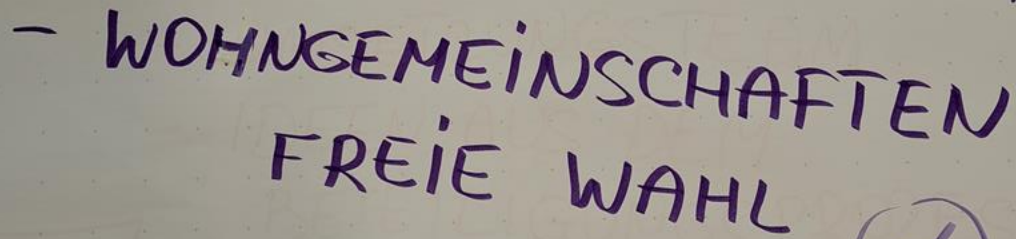 - WOHNGEMEINSCHAFTEN
FREIE WAHL